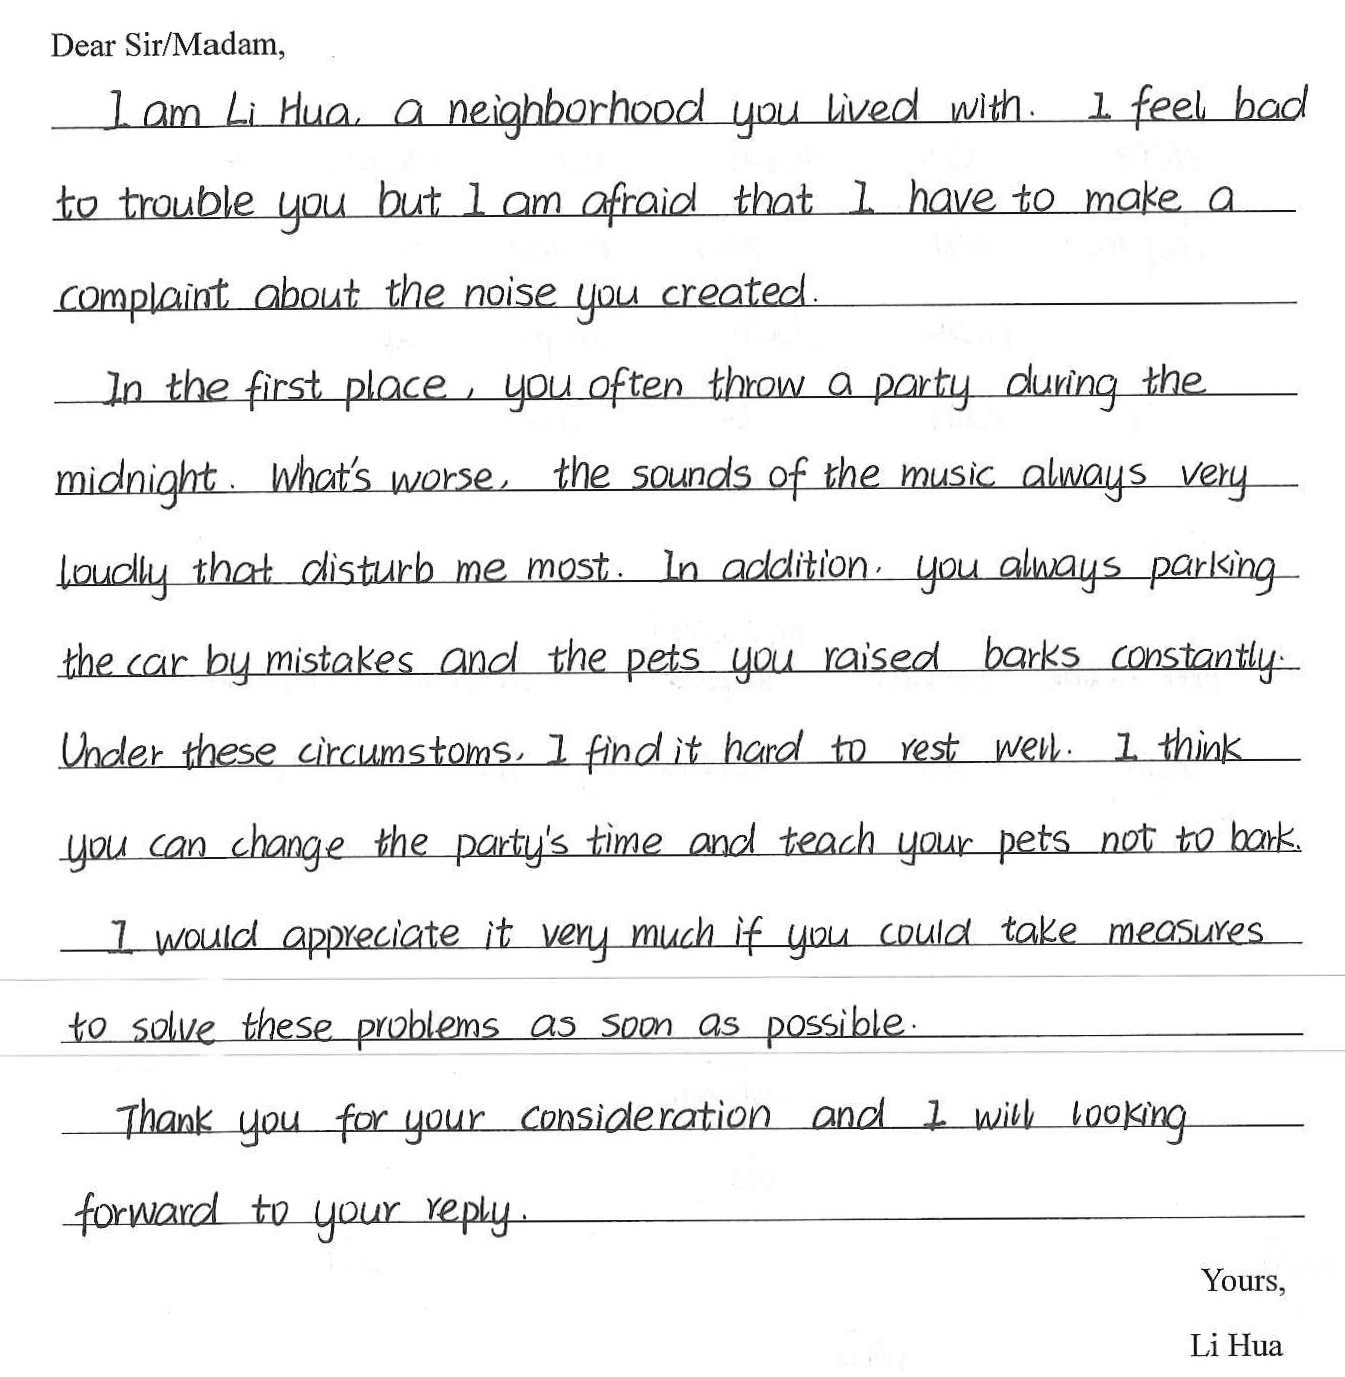 Dear Sir/Madam,
I am Li Hua, a neighborhood you lived with. I feel bad
to trouble you but I am afraid that I have to make a
complaint about the noise you created.
In the first place, you often throw a party during the
midnight. What's worse, the sounds of the music always very
loudly that disturb me most. In addition, you always parking
the car by mistakes and the pets you raised barks constantly.
Under these circumstoms, I find it hard to rest well. I think
you can change the party's time and teach your pets not to bark.
I would appreciate it very much if you could take measures
to solve these problems as soon as possible.
Thank you for your consideration and I will looking
forward to your reply.
Yours,
Li Hua